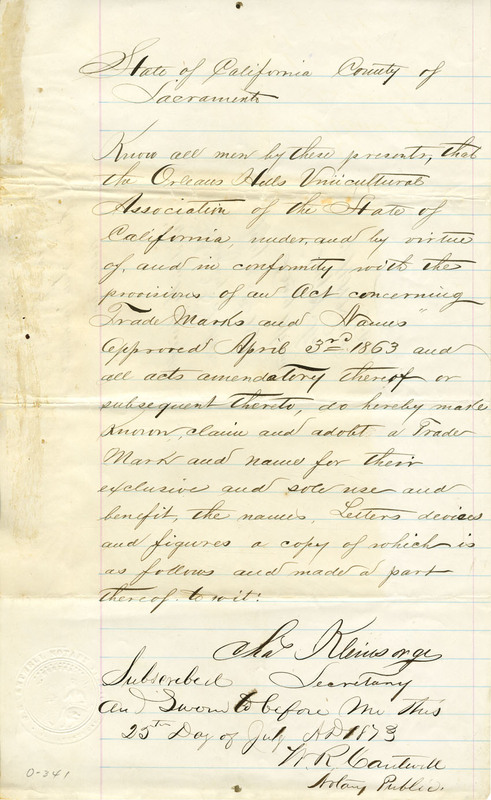 State of California County of
Sacramento
Know all men by these presents, that
the Orleans Hills Vinicultural
Association of the State of
California, under, and by virtue
of, and in conformity with the
provisions of an Act concerning
Trade Marks and Names"
Approved April 3rd 1863 and
all acts amendatory thereof or
subsequent thereto, do hereby make
Known, claim and adopt a Trade
Mark and name for their
exclusive and sole use and
benefit, the names, Letters devices
and figures a copy of which is
as follows and made a part
thereof. to wit:
Chas Kleinsorge
Subscribed Secretary
and Sworn to before me this
25th Day of July AD 1873
W. R. Cantwell
Notary Public.
0-341